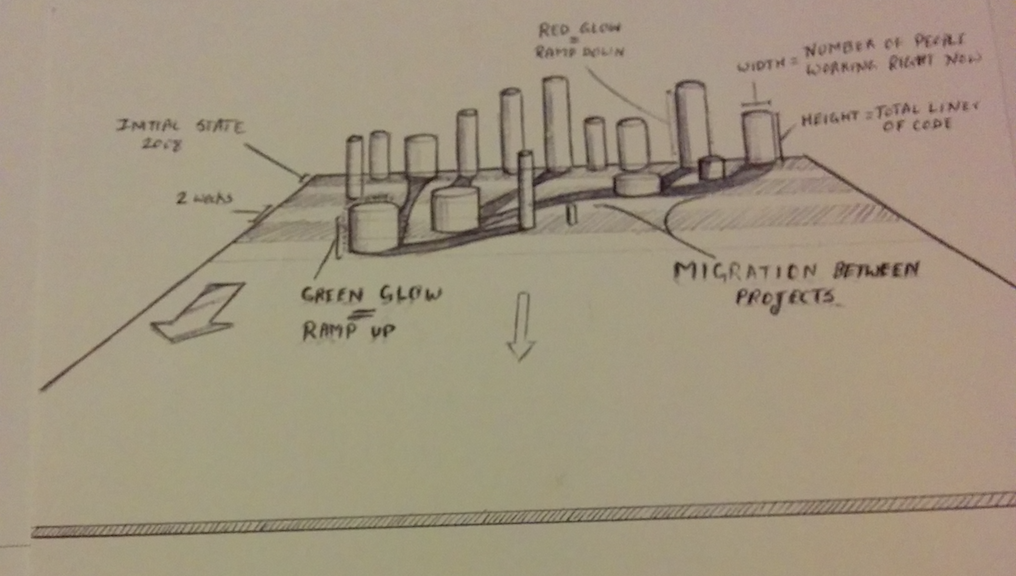 RED GLOW
=
RAMP DOWN
WIDTH = NUMBER OF PEOPLE
WORKING RIGHT NOW
HEIGHT = TOTAL LINES
OF CODE
INITIAL STATE
2008
2 weeks
GREEN GLOW
=
RAMP UP
MIGRATION BETWEEN
PROJECTS